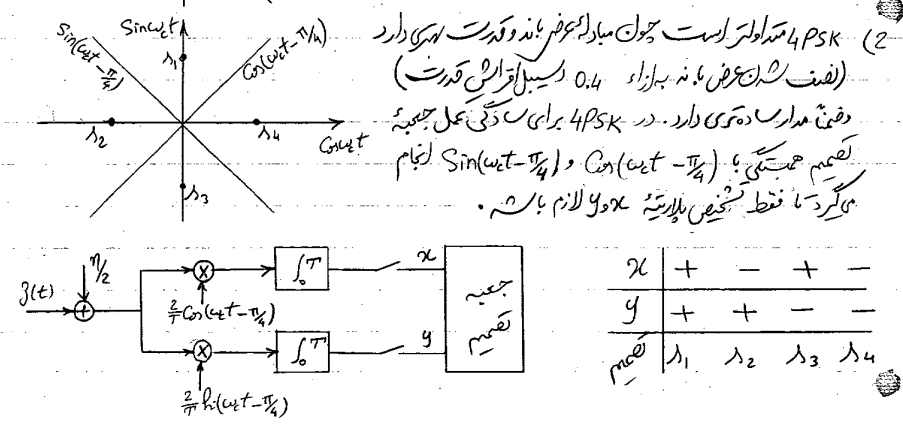 2) 4PSK متداولتر است چون مبادلهٔ عرض باند و قدرت بهتری دارد
(نصف شدن عرض باند به ازاء 0.4 دسیبل افزایش قدرت)
وضمناً مدار ساده‌تری دارد. در 4PSK برای سادگی عمل جعبهٔ
تصمیم همبستگی با Cos(ωct - π/4) و Sin(ωct - π/4) انجام
می‌گیرد تا فقط تشخیص پلاریتهٔ x و y لازم باشد.
Sinωct
Sin(ωct - π/4)
Cos(ωct - π/4)
s1
s2
s4
Cosωct
s3
z(t)
η/2
+
×
2/T Cos(ωct - π/4)
∫0T
x
×
2/T Sin(ωct - π/4)
∫0T
y
جعبه
تصمیم
x + - + -
y + + - -
تصمیم s1 s2 s3 s4